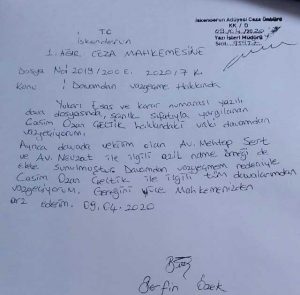 İskenderun Adliyesi Ceza
KK / D
Yazı İşleri Müdürü
TC
İskenderun
1. AĞIR CEZA MAHKEMESİNE
Dosya No: 2019/200 E. 2020/7 K.
Konu : Davamdan vazgeçme Hakkında
Yukarı Esas ve karar numarası yazılı
dava dosyasında, sanık sıfatıyla yargılanan
Casim Ozan Çeltik hakkındaki vaki davamdan
vazgeçiyorum.
Ayrıca davada vekilim olan Av. Mehtap Sert
ve Av. Nevzat ile ilgili azil name örneği de
ekte sunulmuştur. Davamdan vazgeçmem nedeniyle
Casim Ozan Çeltik ile ilgili tüm davalarımdan
vazgeçiyorum. Gereğini Yüce Mahkemenizden
arz ederim. 09.04.2020
Berfin Özek